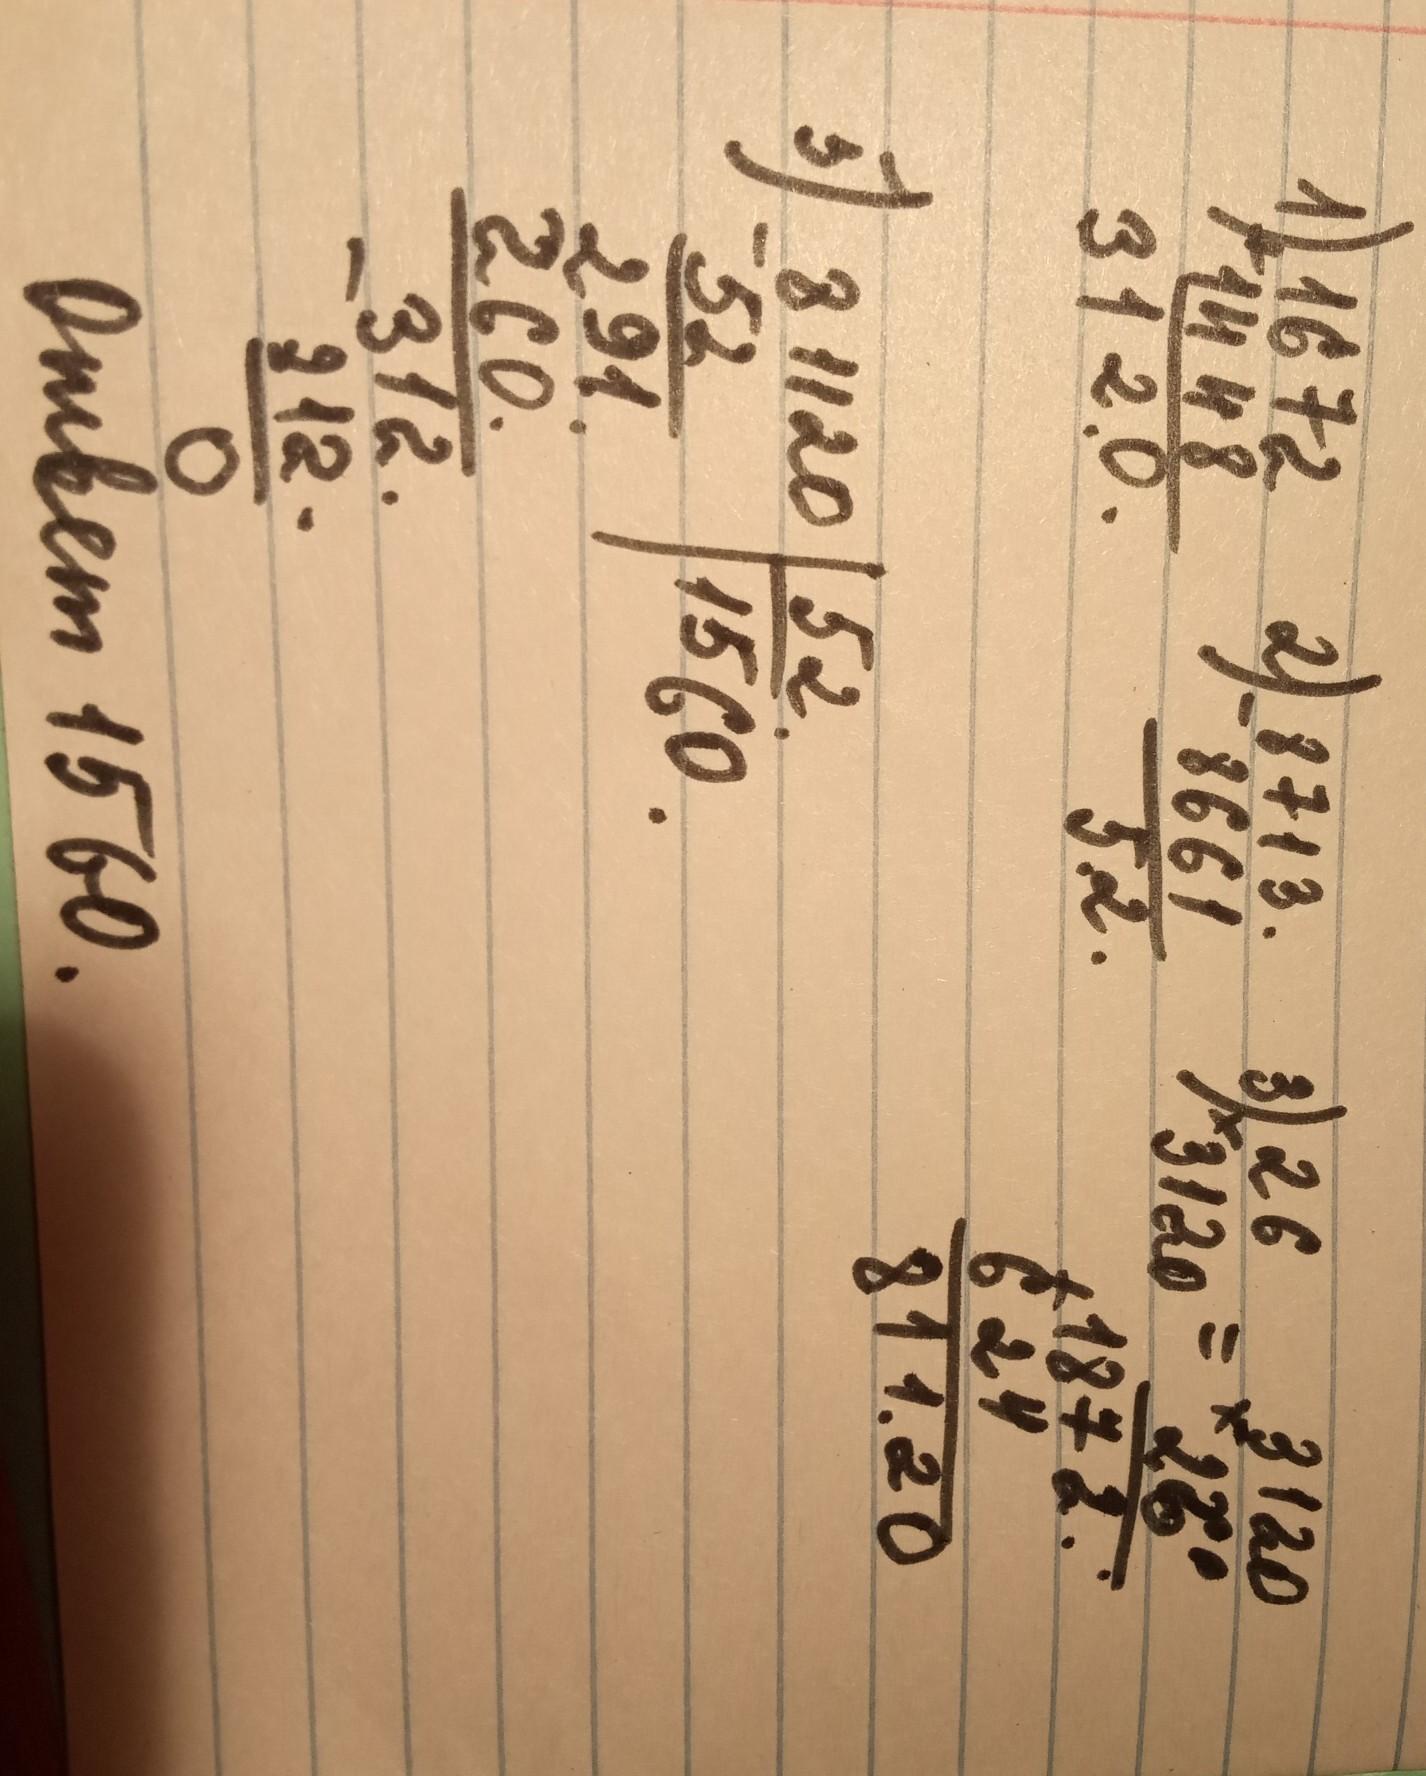 1) 1672
+ 1448
3120.
2) - 8713.
8661
52.
3) 26
× 3120 = × 3120
26
+ 1872.
624
811.20
81120 | 52.
- 52 | 1560.
291.
260.
- 312.
312.
0
Ответ 1560.